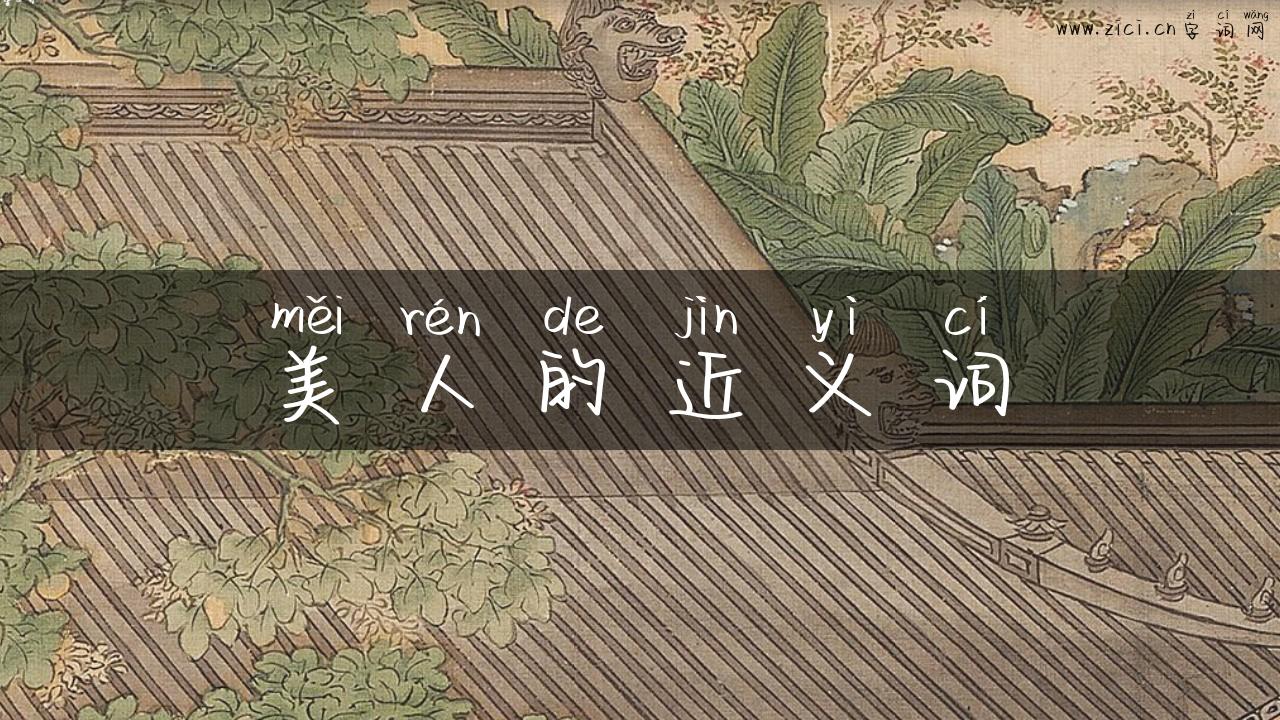 zì cí wǎng
www.zici.cn 字词网
měi rén de jìn yì cí
美人的近义词